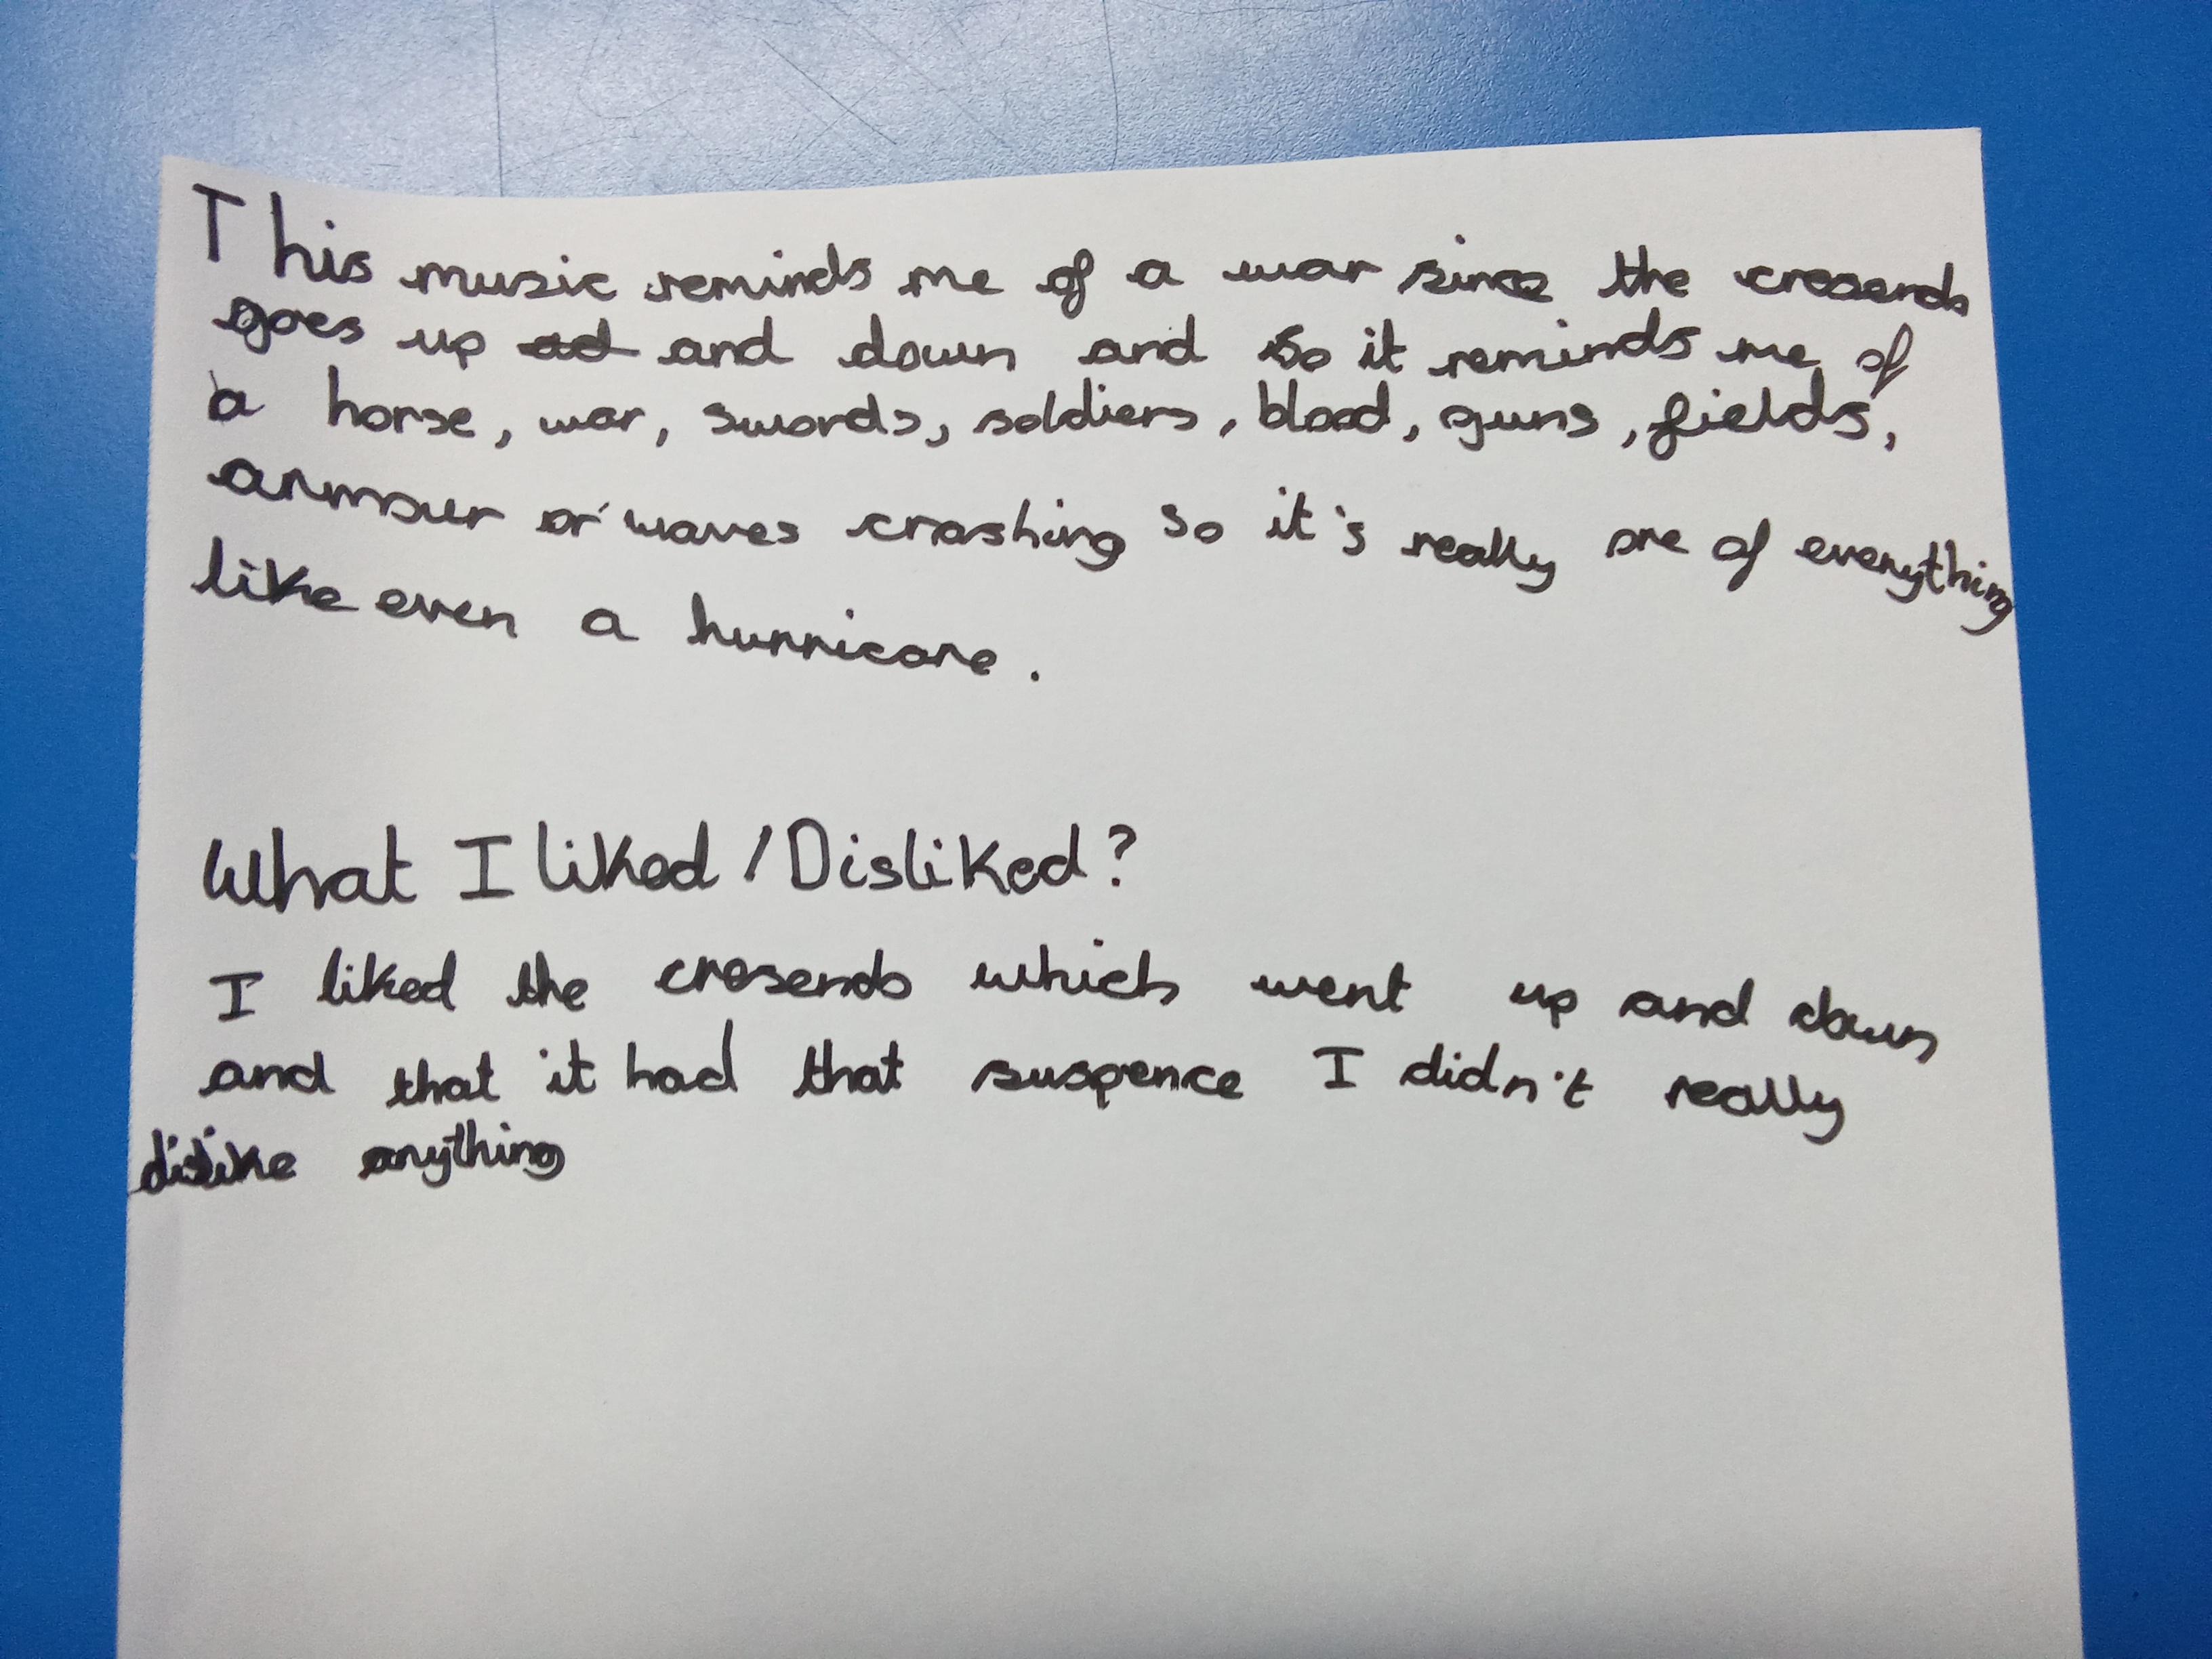 This music reminds me of a war since the cresendo
goes up ad and down and so it reminds me of
a horse, war, swords, soldiers, blood, guns, fields,
armour or waves crashing so it's really one of everything
like even a hurricane.
What I liked / Disliked?
I liked the cresendo which went up and down
and that it had that suspence I didn't really
dislike anything